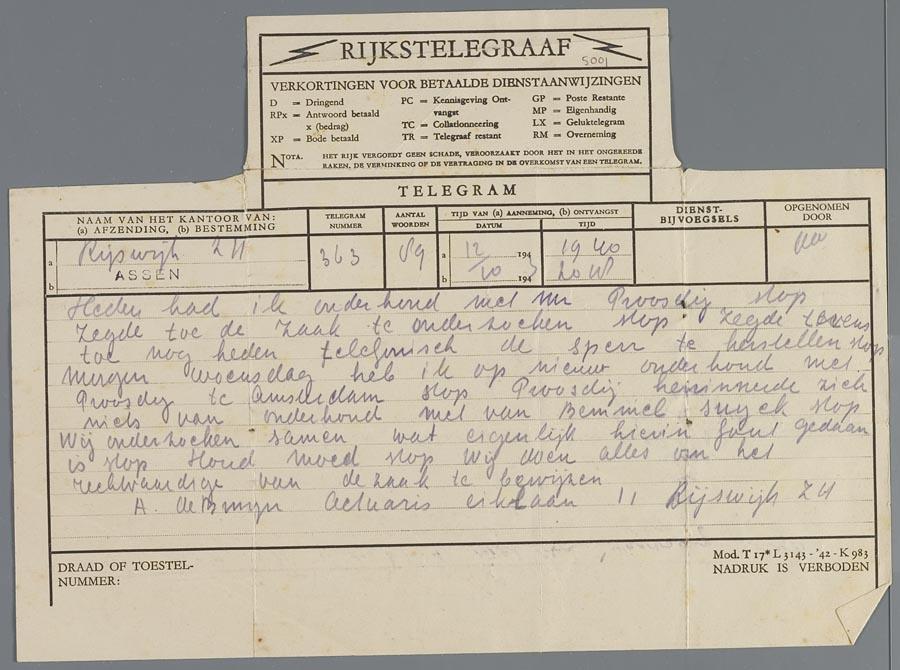 RIJKSTELEGRAAF
5001
VERKORTINGEN VOOR BETAALDE DIENSTAANWIJZINGEN
D = Dringend
RPx = Antwoord betaald
x (bedrag)
XP = Bode betaald
PC = Kennisgeving Ont-
vangst
TC = Collationneering
TR = Telegraaf restant
GP = Poste Restante
MP = Eigenhandig
LX = Geluktelegram
RM = Overneming
NOTA. HET RIJK VERGOEDT GEEN SCHADE, VEROORZAAKT DOOR HET IN HET ONGEREEDE
RAKEN, DE VERMINKING OF DE VERTRAGING IN DE OVERKOMST VAN EEN TELEGRAM.
TELEGRAM
NAAM VAN HET KANTOOR VAN:
(a) AFZENDING, (b) BESTEMMING
TELEGRAM
NUMMER
AANTAL
WOORDEN
TIJD VAN (a) AANNEMING, (b) ONTVANGST
DATUM
TIJD
DIENST-
BIJVOEGSELS
OPGENOMEN
DOOR
a Rijswijk ZH
b ASSEN
363
89
a 12 194
b 10 194 3
1940
Heden had ik onderhoud met Mr Proosdij stop
zegde toe de zaak te onderzoeken stop zegde tevens
toe nog heden telefonisch de sperr te herstellen stop
Morgen woensdag heb ik op nieuw onderhoud met
Proosdij te Amsterdam stop Proosdij herinnerde zich
niets van onderhoud met van Bemmel suyck stop
Wij onderzoeken samen wat eigenlijk hierin fout gedaan
is stop Houd moed stop Wij doen alles om het
rechtvaardige van de zaak te bewijzen
A. de Bruyn Actuaris eiklaan 11 Rijswijk ZH
DRAAD OF TOESTEL-
NUMMER:
Mod. T 17* L 3143 - '42 - K 983
NADRUK IS VERBODEN